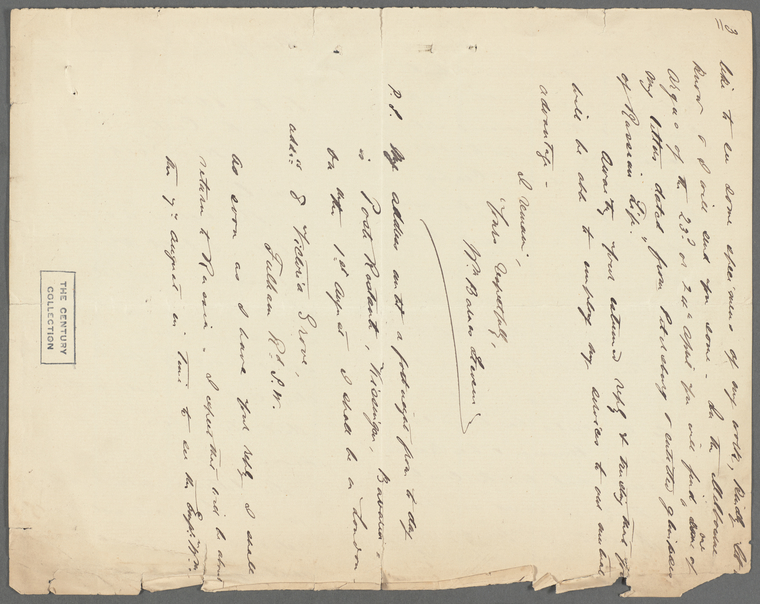 3
like to see some specimens of my work, kindly let me
know & I will send you some - In the Melbourne
Argus of the 23d or 24th April you will find one of
my letters dated from Petersburg & entitled "Glimpses
of Russian Life."
Awaiting your esteemed reply & trusting that you
will be able to employ my services to our mutual
advantage -
I remain,
Yours respectfully,
Wm Barnes
P.S. My address until a fortnight from to day
is Poste Restante, Kissingen, Bavaria,
On the 1st August I shall be in London
address 8 Victoria Grove,
Fulham Rd S.W.
As soon as I have your reply I shall
return to Russia - I expect this will be about
the 7th August in time to see the
THE CENTURY
COLLECTION